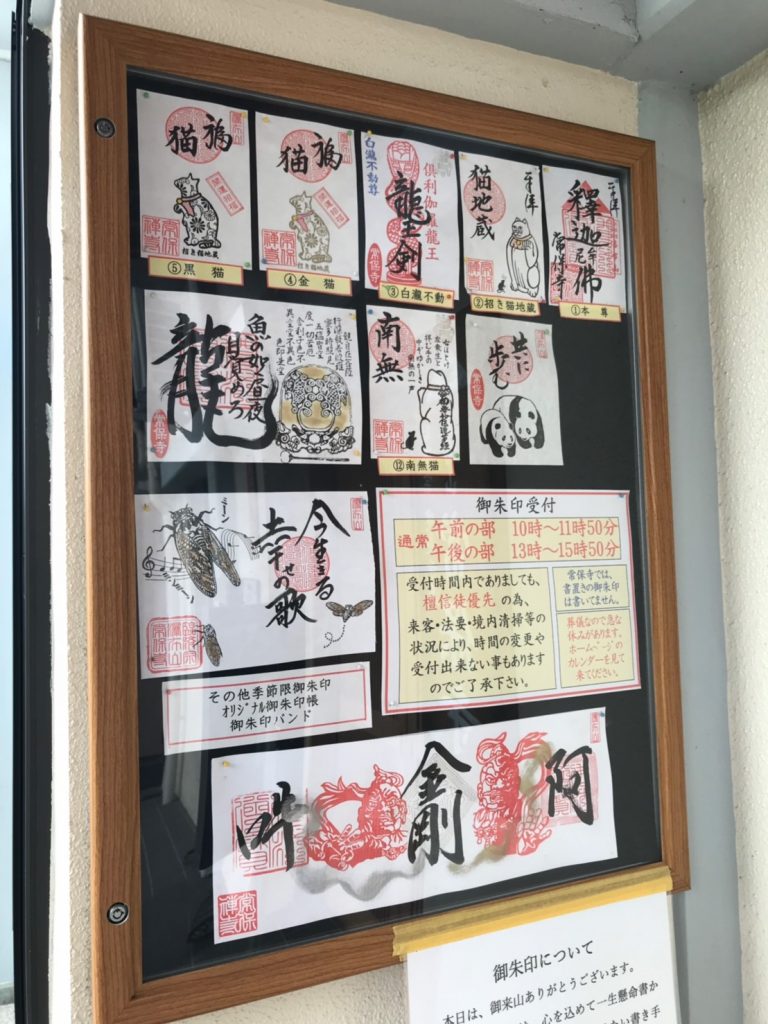 福猫
開運招福
招き猫地蔵
⑤黒 猫
福猫
開運招福
招き猫地蔵
④金 猫
白瀧不動尊
倶利伽羅龍王
龍王剣
常保寺
③白瀧不動
猫地蔵
②招き猫地蔵
釋迦牟尼佛
常保寺
①本 尊
魚が如昼夜
目覚めろ
龍
常保寺
南無
南無の一声
⑫南無猫
共に
歩む
常保寺
ミーン
今生きる
幸せの歌
御朱印受付
通常 午前の部 10時～11時50分
午後の部 13時～15時50分
受付時間内でありましても、
檀信徒優先 の為、
来客・法要・境内清掃等の
状況により、時間の変更や
受付出来ない事もあります
のでご了承下さい。
常保寺では、
書置きの御朱印
は書いてません。
葬儀なので急な
休みがあります。
ホームページの
カレンダーを見て
来てください。
その他季節限御朱印
オリジナル御朱印帳
御朱印バンド
阿
金剛
吽
御朱印について
本日は、御来山ありがとうございます。
心を込めて一生懸命書か
ない書き手